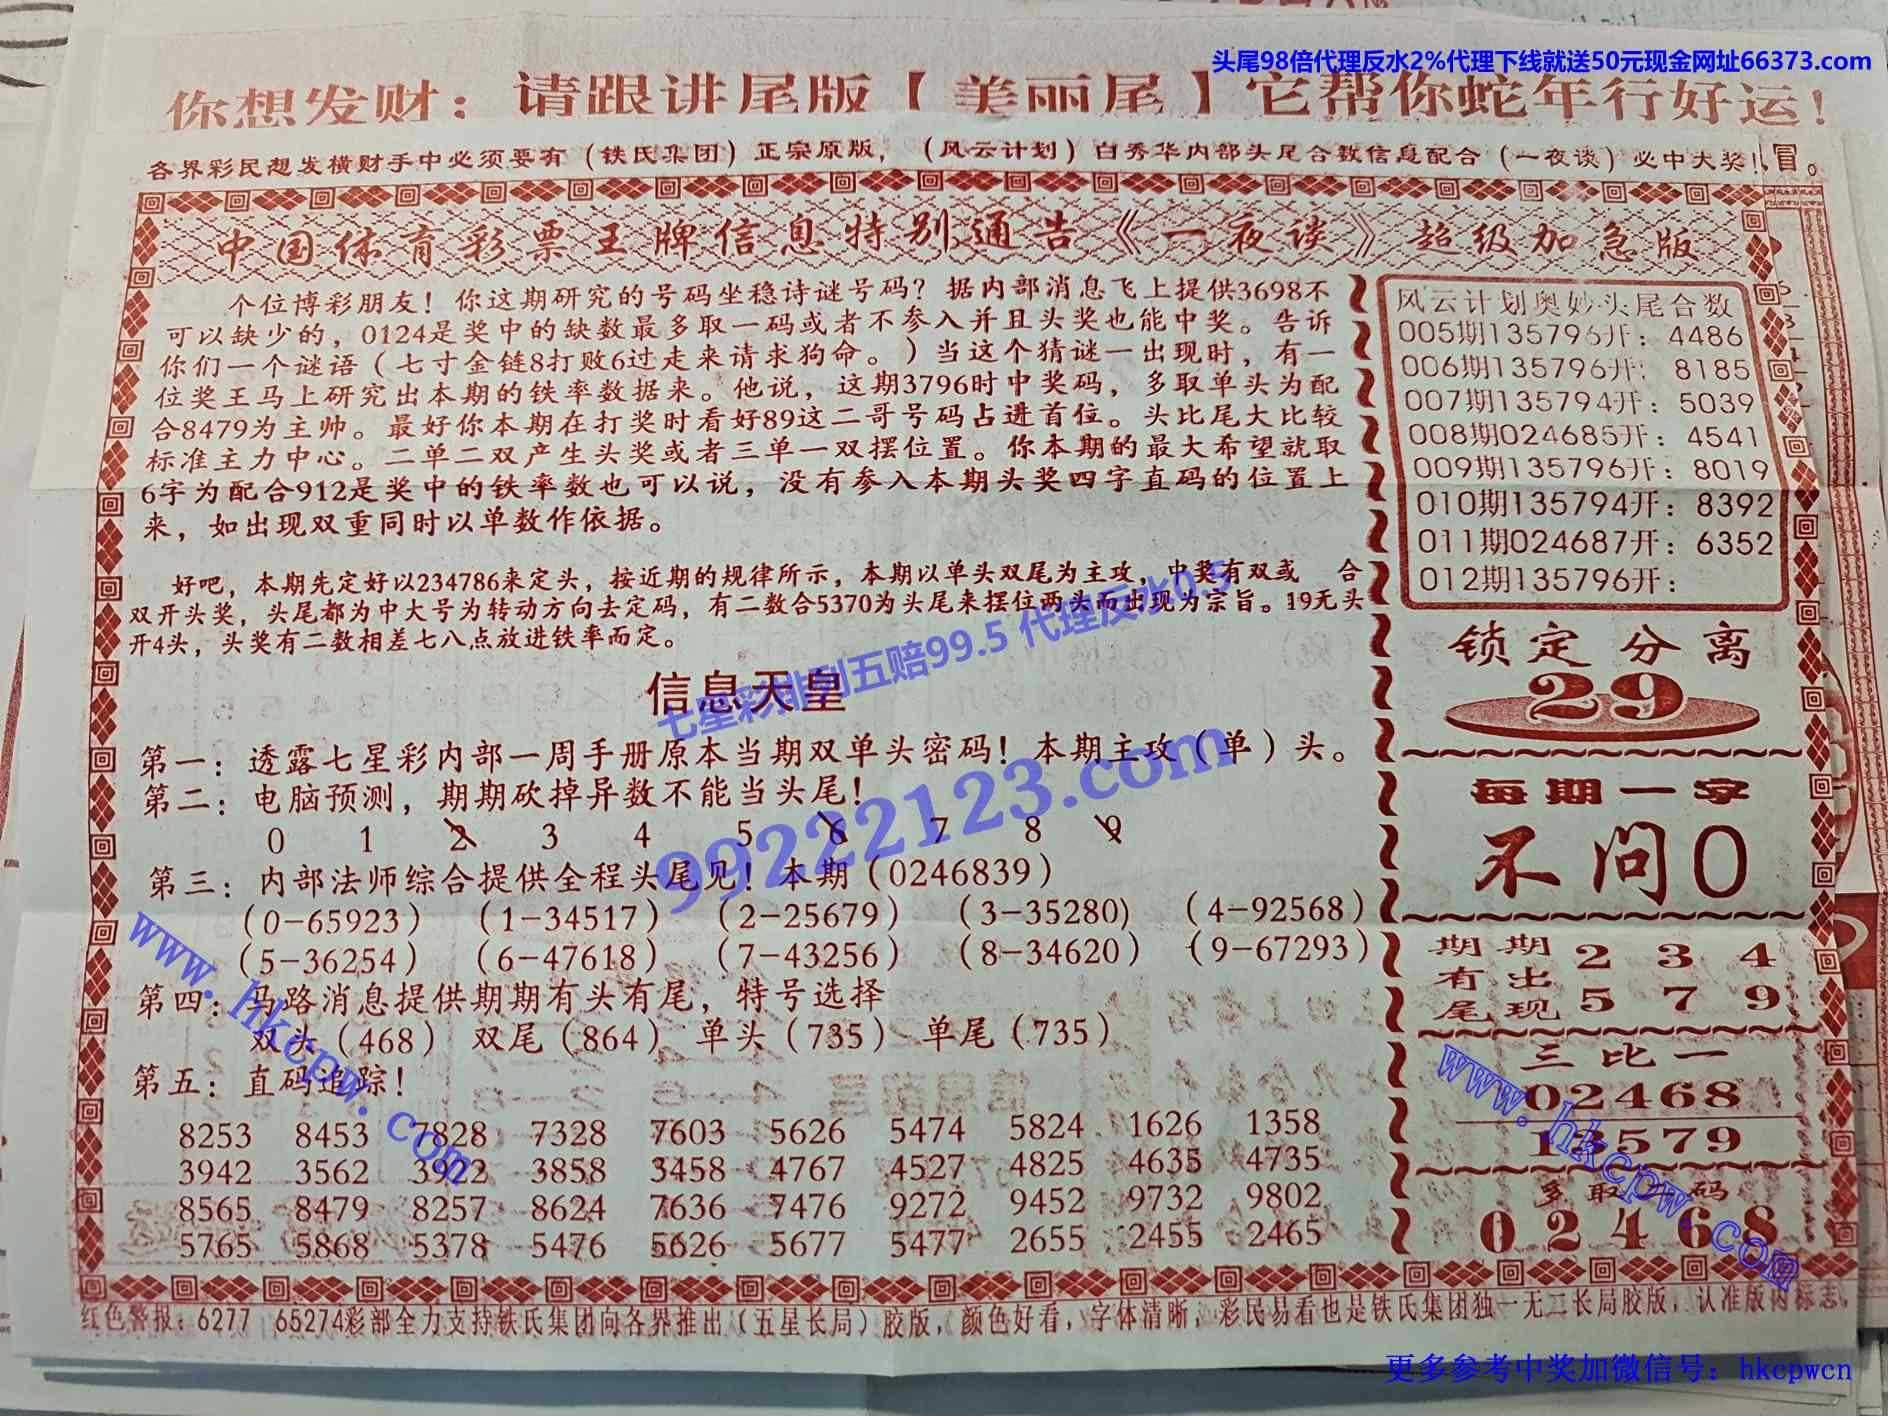 头尾98倍代理反水2%代理下线就送50元现金网址66373.com
你想发财：请跟讲尾版【美丽尾】它帮你蛇年行好运！
各界彩民想发横财手中必须要有（铁氏集团）正宗原版，（风云计划）白秀华内部头尾合数信息配合（一夜谈）必中大奖！
中国体育彩票王牌信息特别通告《一夜谈》超级加急版
个位博彩朋友！你这期研究的号码坐稳诗谜号码？据内部消息飞上提供3698不
可以缺少的，0124是奖中的缺数最多取一码或者不参入并且头奖也能中奖。告诉
你们一个谜语（七寸金链8打败6过走来请求狗命。）当这个猜谜一出现时，有一
位奖王马上研究出本期的铁率数据来。他说，这期3796时中奖码，多取单头为配
合8479为主帅。最好你本期在打奖时看好89这二哥号码占进首位。头比尾大比较
标准主力中心。二单二双产生头奖或者三单一双摆位置。你本期的最大希望就取
6字为配合912是奖中的铁率数也可以说，没有参入本期头奖四字直码的位置上
来，如出现双重同时以单数作依据。
好吧，本期先定好以234786来定头，按近期的规律所示，本期以单头双尾为主攻，中奖有双或 合
双开头奖，头尾都为中大号为转动方向去定码，有二数合5370为头尾来摆位两头而出现为宗旨。19无头
开4头，头奖有二数相差七八点放进铁率而定。
七星彩排列五赔99.5 代理反水0.5
99222123.com
信息天皇
第一：透露七星彩内部一周手册原本当期双单头密码！本期主攻（单）头。
第二：电脑预测，期期砍掉异数不能当头尾！
0 1 2 3 4 5 6 7 8 9
第三：内部法师综合提供全程头尾见！本期（0246839）
（0-65923） （1-34517） （2-25679） （3-35280） （4-92568）
（5-36254） （6-47618） （7-43256） （8-34620） （9-67293）
第四：马路消息提供期期有头有尾，特号选择
双头（468） 双尾（864） 单头（735） 单尾（735）
第五：直码追踪！
8253 8453 7828 7328 7603 5626 5474 5824 1626 1358
3942 3562 3922 3858 3458 4767 4527 4825 4635 4735
8565 8479 8257 8624 7636 7476 9272 9452 9732 9802
5765 5868 5378 5476 5626 5677 5477 2655 2455 2465
www.hkcpw.com
风云计划奥妙头尾合数
005期135796开：4486
006期135796开：8185
007期135794开：5039
008期024685开：4541
009期135796开：8019
010期135794开：8392
011期024687开：6352
012期135796开：
锁定分离
29
每期一字
不问0
期期 2 3 4
有出
尾现 5 7 9
三比一
02468
13579
多取 码
02468
www.hkcpw.com
红色警报：6277 65274彩部全力支持铁氏集团向各界推出（五星长局）胶版，颜色好看，字体清晰，彩民易看也是铁氏集团独一无二长局胶版，认准版内标志，
更多参考中奖加微信号：hkcpwcn